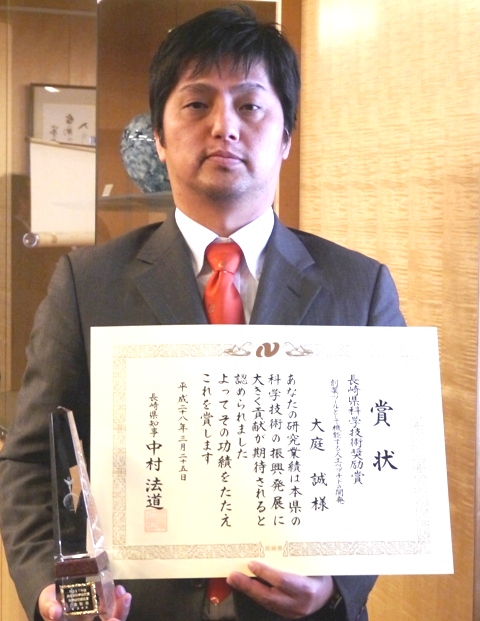 賞状
長崎県科学技術奨励賞
大庭 誠 様
あなたの研究業績は本県の
科学技術の振興・発展に
大きく貢献が期待されると
認められました
よってその功績をたたえ
これを賞します
平成二八年三月二五日
長崎県知事 中村法道